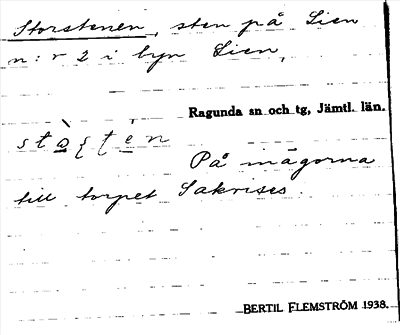 Storstenen, sten på Lien
n:r 2 i byn Lien,
Ragunda sn och tg, Jämtl. län.
På mågorna
till torpet Sakrises.
BERTIL FLEMSTRÖM 1938.